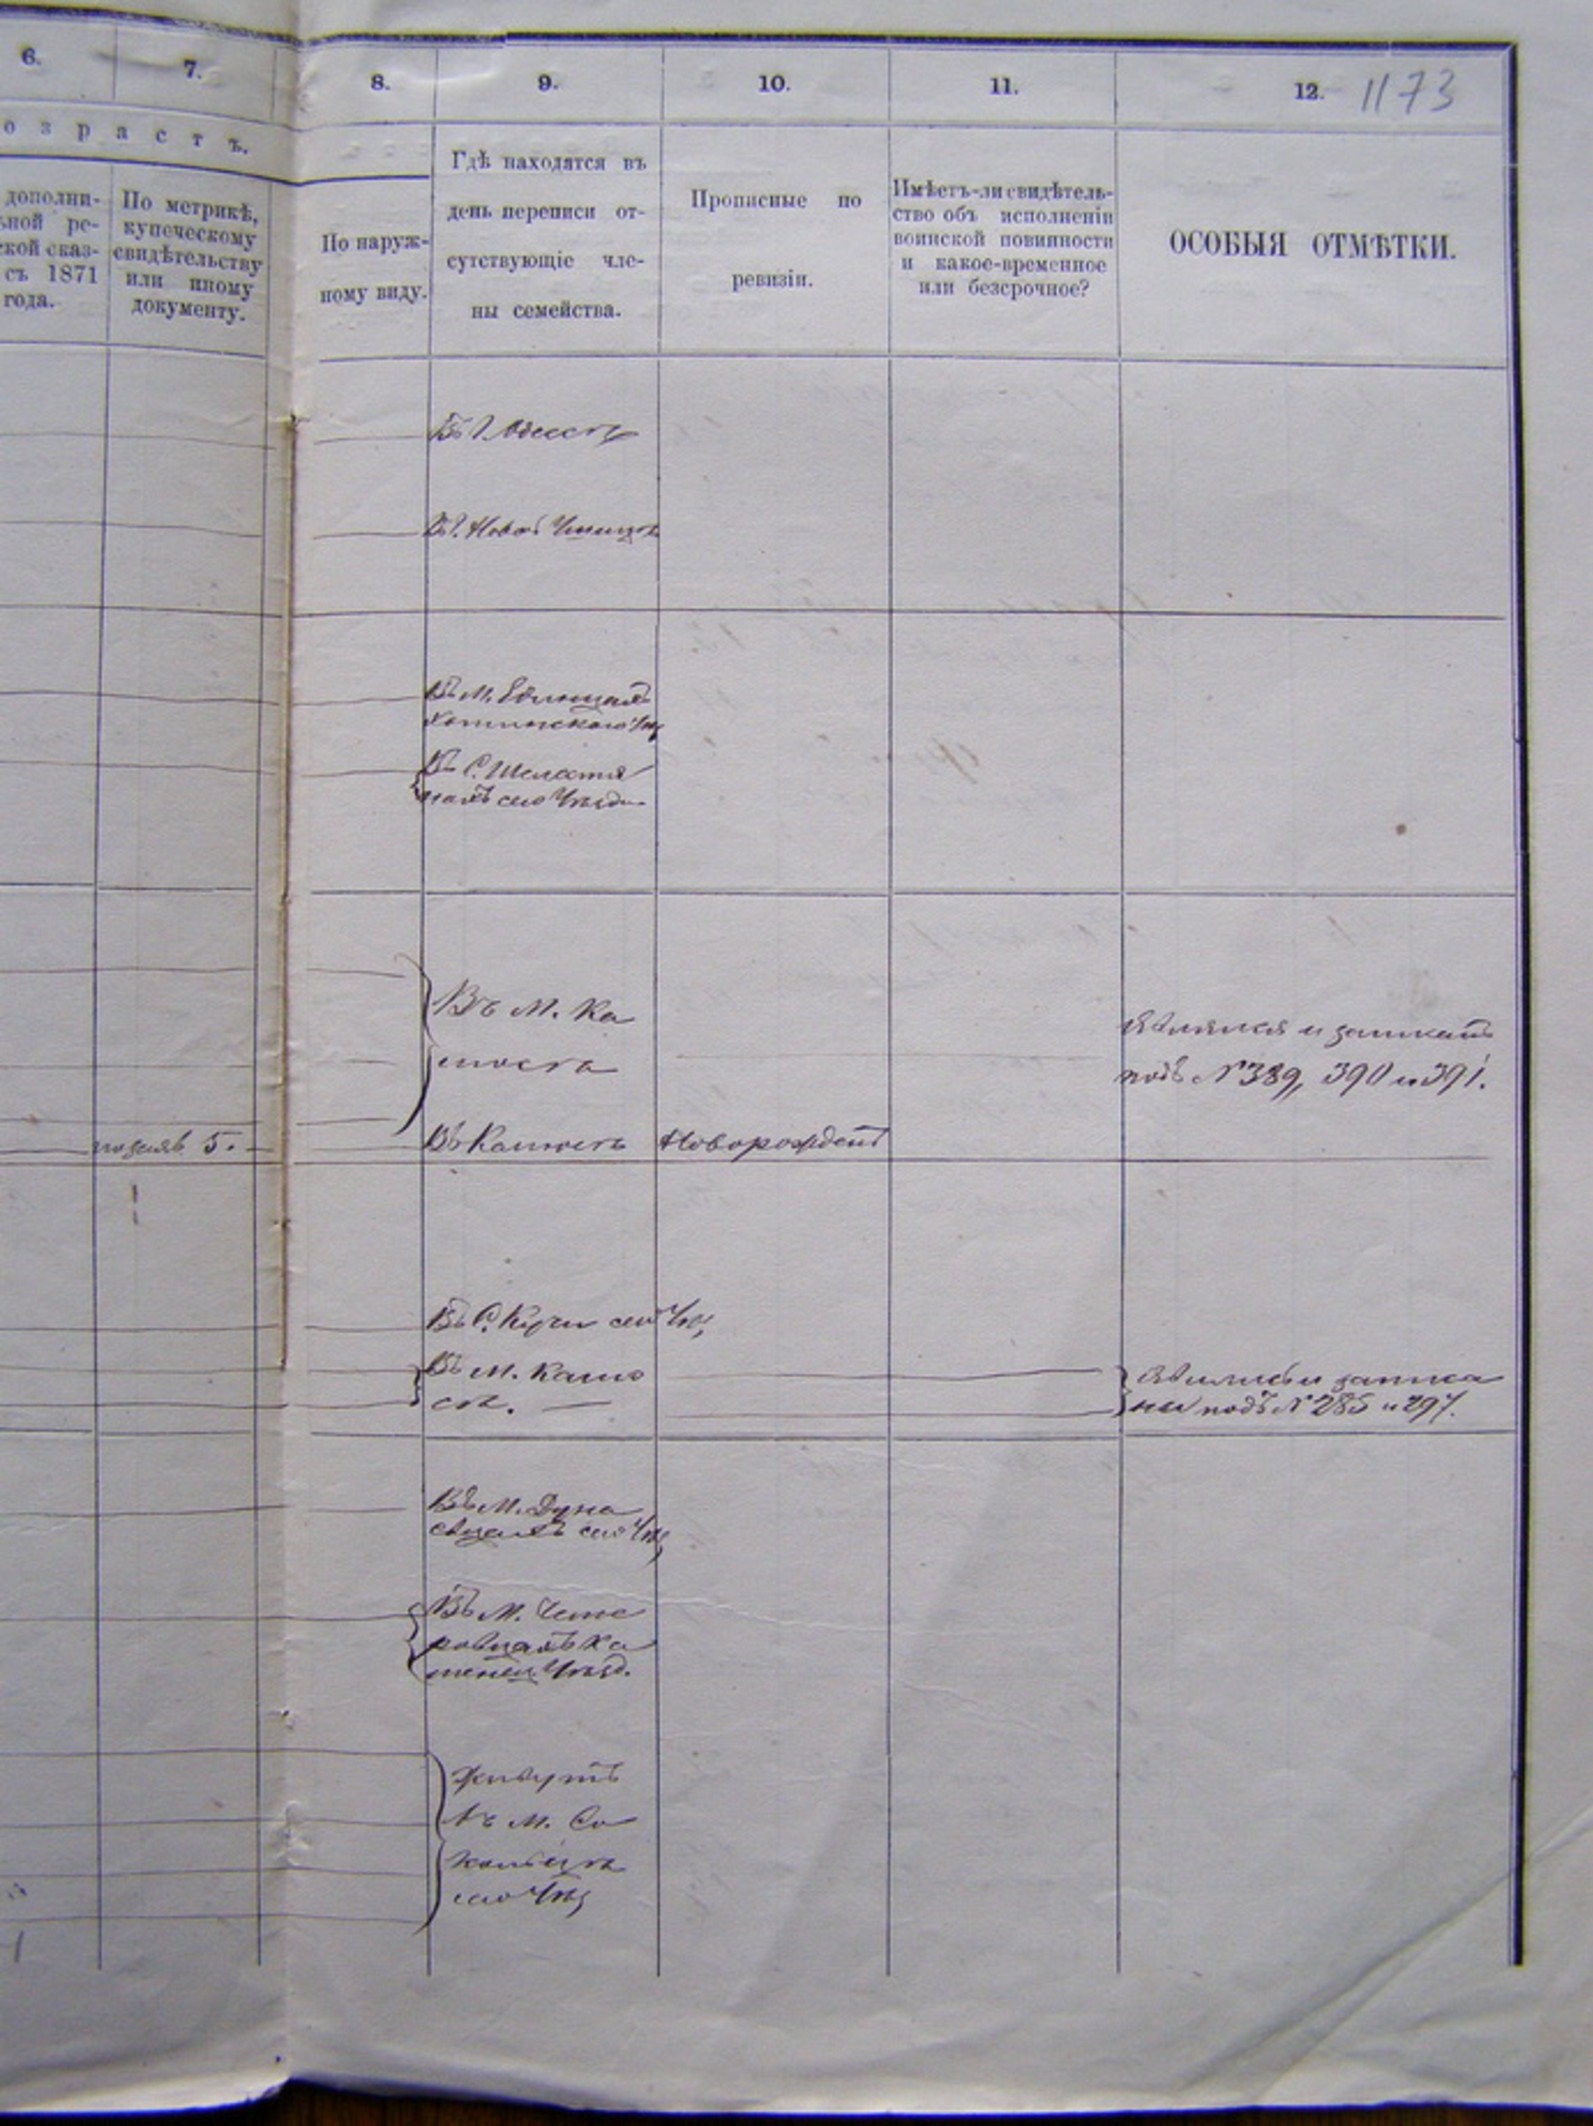 6.
7.
8.
9.
10.
11.
12.
1173
озрастъ.
дополни-
ьной ре-
ской сказ-
съ 1871
года.
По метрикѣ,
купеческому
свидѣтельству
или иному
документу.
По наруж-
ному виду.
Гдѣ находятся въ
день переписи от-
сутствующіе чле-
ны семейства.
Прописные по
ревизіи.
Имѣетъ-ли свидѣтель-
ство объ исполненіи
воинской повинности
и какое-временное
или безсрочное?
ОСОБЫЯ ОТМѢТКИ.
Въ г. Одессѣ
Въ г. Новой Ушицѣ
Въ м. Единцахъ
Хотинскаго Уѣз
Въ С.
сего Уѣзда
Въ м. Ка
люсѣ
и записанъ
подъ № 389, 390 и 391.
5.
Въ Калюсѣ
Новорожден
Въ С. сего Уѣз,
Въ м. Калю
сѣ.
и записа
ны подъ № 285 и 297.
Въ м. Дуна
евцахъ сего Уѣз,
Въ м. Чеме
ровцахъ Ка
менец. Уѣзд.
Живутъ
въ м. Со
кольцѣ
сего Уѣз,